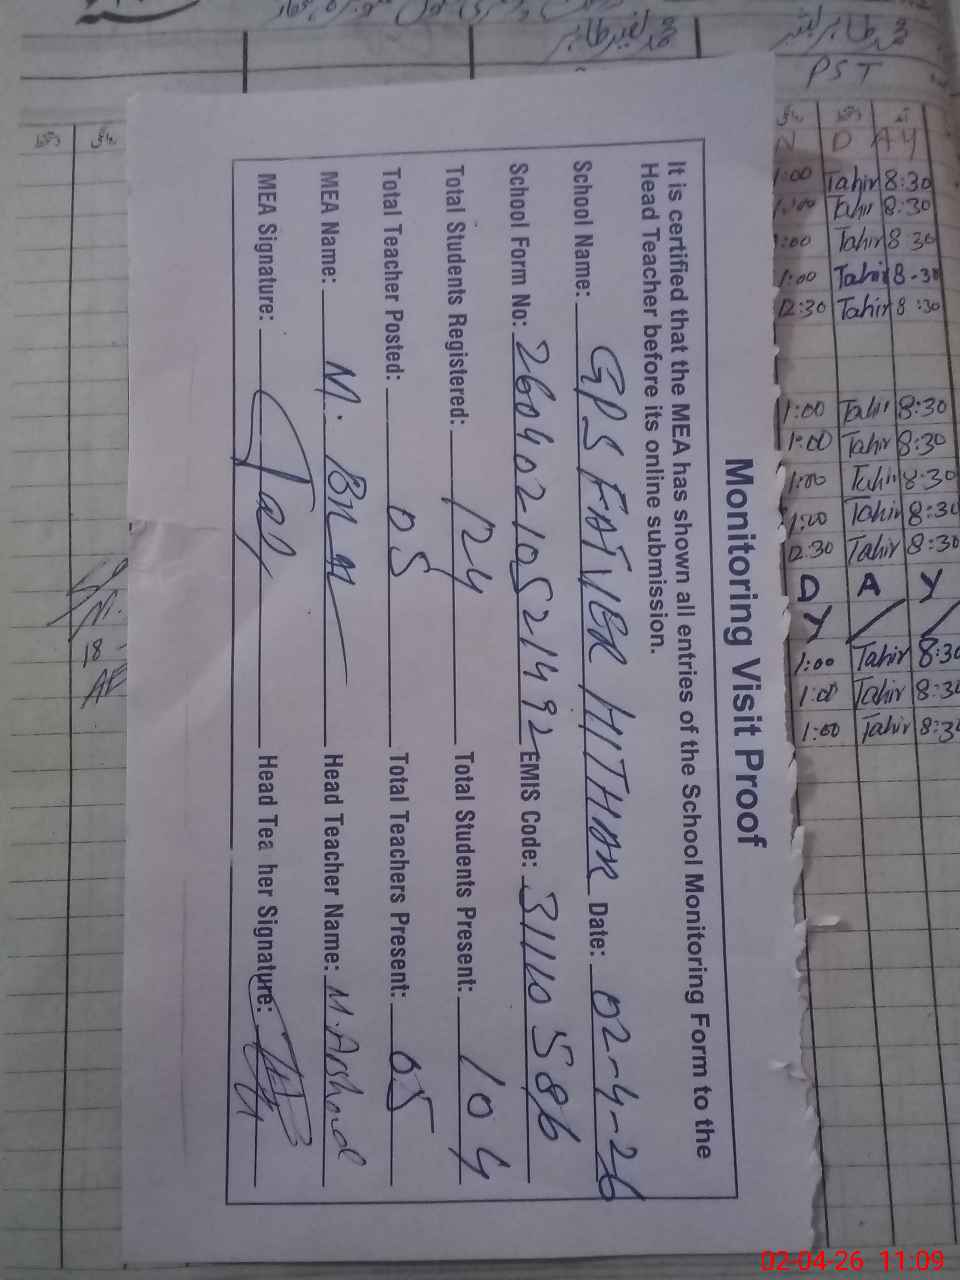 Monitoring Visit Proof
It is certified that the MEA has shown all entries of the School Monitoring Form to the
Head Teacher before its online submission.
School Name: GPS FATVER HITHAR Date: 02-4-26
School Form No: 26040210521492 EMIS Code: 31110586
Total Students Registered: 124 Total Students Present: 104
Total Teacher Posted: 05 Total Teachers Present: 05
MEA Name: M. Head Teacher Name: M. Arshad
MEA Signature: Head Tea her Signature:
PST
N D A Y
1:00 Tahir 8:30
1:00 Tahir 8:30
1:00 Tahir 8 30
1:00 Tahir 8-30
12:30 Tahir 8:30
1:00 Tahir 8:30
1:00 Tahir 8:30
1:00 Tahir 8:30
1:00 Tahir 8:30
12.30 Tahir 8:30
D A Y
Y
1:00 Tahir 8:30
1:00 Tahir 8:30
1:00 Tahir 8:30
18
02-04-26 11:09